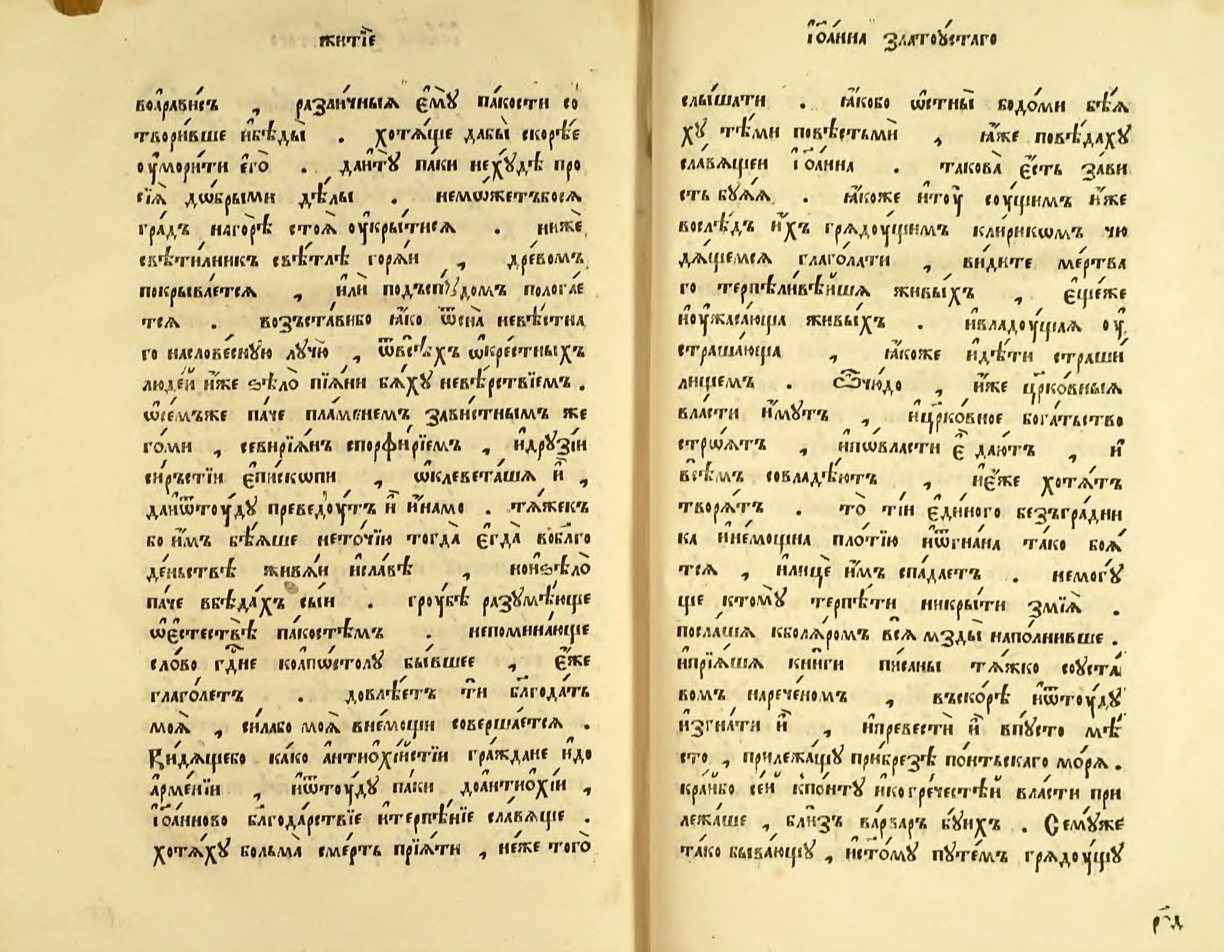 житїе
волрависъ , разли́чныѧ є҆мꙋ̀ па́кости со
твори́вше и҆бѣды̀ . хотѧ́ще дабы̀ скорѣ́е
ᲂу҆мори́ти є҆го̀ . даи҆тꙋ̀ па́ки нехꙋ́дѣ про
сїѧ̀ дѡ́брыми дѣ́лы . немѡ́жетъбосѧ
гра́дъ нагорѣ̀ стоѧ̀ ᲂу҆кры́тисѧ . нижѐ
свѣти́лникъ свѣ́тлѣ горѧ́и , дре́вомъ
покрыва́етсѧ , и҆лѝ подъспꙋ́домъ полога́е
тсѧ . возъста́вибо ꙗ҆́ко ѿсна̀ невѣ́стна
го насловесную лꙋчю̀ , ѿвсѣ́хъ ѡ҆кре́стныхъ
люде́й и҆́же ѕѣлѡ̀ пїѧ́ни бѧ́хꙋ невѣ́рствїемъ .
ѡ҆се́мъже па́че пла́менемъ за́вистнымъ же
го́ми , севирїѧ́нъ спорфи́рїемъ , и҆дрꙋзі́и
си́рьстїи є҆пи́скѡпи , ѡ҆клевета́шѧ и҆̀ ,
даи҆ѿтоу́дꙋ преведоу́тъ и҆̀ и҆́намо . тѧ́жекъ
бо и҆́мъ бѣ́ѧше нето́чїю тогда̀ є҆гда̀ вобл҃го
де́ньствѣ живѧ́и и҆сла́вѣ , нои҆ѕѣлѡ̀
па́че вбѣда́хъ сы́и . гроу́бѣ разꙋмѣ́юще
ѡ҆є҆стествѣ̀ па́костѣмъ . непомина́юще
сло́во гд҃не коапⷭ҇толꙋ бы́вшее , є҆́же
глаго́летъ . довлѣ́етъ тѝ бл҃года́ть
моѧ̀ , си́лабо моѧ̀ вне́мощи соверша́етсѧ .
Ви́дѧщебо ка́ко а҆нтиохі́йстїи гра́ждане и҆до
а҆рме́нїи , и҆ѿтоу́дꙋ па́ки доа҆нтиохі́и ,
і҆ѡа́нново бл҃года́рствїе и҆терпѣ́нїе сла́вѧще .
хотѧ́хꙋ больма̀ сме́рть прїѧ́ти , не́же того̀
і҆ѡа́нна златоꙋ́стаго
слы́шати . ꙗ҆́кобо ѡ҆стны̀ бодо́ми бѣ́ѧ
хꙋ тѣ́ми по́вѣстьмѝ , ꙗ҆́же повѣ́дахꙋ
сла́вѧщеи і҆ѡа́нна . такова̀ є҆́сть за́ви
сть бу́ѧѧ . ꙗ҆́коже и҆тоу̀ соу́щимъ и҆́же
вослѣ́дъ и҆́хъ грѧдоу́щимъ кли́рикѡмъ чю
дѧ́щемсѧ глаго́лати , ви́дите ме́ртва
го терпѣли́вѣйшѧ живы́хъ , є҆ще́же
и҆оу҆жаса́юща живы́хъ . и҆владоу́щаѧ ᲂу҆
страша́юща , ꙗ҆́коже и҆дѣ́ти страши́
лищемъ . ѽчю́до , и҆́же цр҃ко́вныѧ
вла́сти и҆́мꙋтъ , и҆цр҃ко́вное бога́тьство
стрѡ́ѧтъ , и҆пѡ́власти є҆̀ даю́тъ , и҆̀
всѣ́мъ совладѣ́ютъ , и҆є҆́же хотѧ́тъ
творѧ́тъ . то̀ ті́и є҆ди́ного безъгра́дни
ка и҆не́мощна пло́тїю и҆ѿгна́на та́ко боѧ́
тсѧ , и҆лицѐ и҆́мъ спа́даетъ . немогꙋ́
ще ктомꙋ̀ терпѣ́ти никры́ти змїѧ̀ .
посла́шѧ кболѧ́ромъ всѧ̀ мзды̀ напо́лнивше .
и҆прїѧ́шѧ кни́ги пи́саны тѧ́жко соуста́
вомъ нарече́номъ , въско́рѣ и҆ѿтоу́дꙋ
и҆згна́ти и҆̀ , и҆превестѝ и҆̀ впу́сто мѣ́
сто , прилежа́щꙋ прибре́зѣ по́нтьскаго мо́рѧ .
кра́йбо се́й кпо́нту и҆когре́честѣй вла́сти при
лежа́ше , бли́зъ ва́рваръ бу́ихъ . Семꙋ́же
та́ко быва́ющꙋ , и҆сто́мꙋ пꙋте́мъ грѧдоу́щꙋ
р҃д